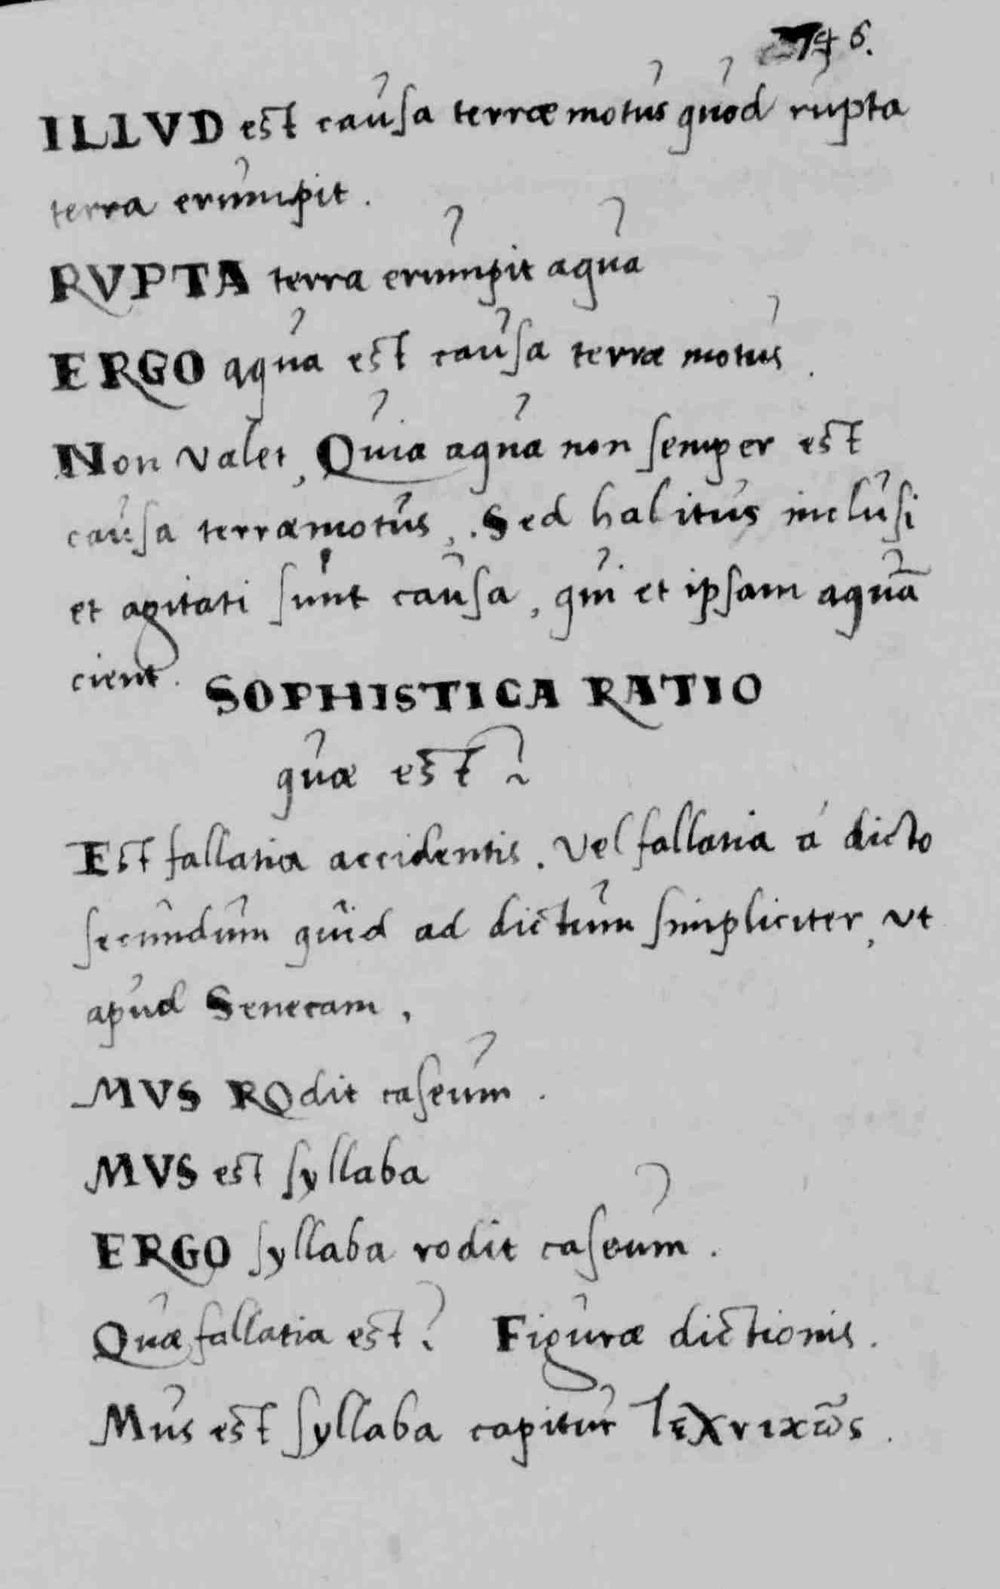 ILLVD est causa terræ motus quod rupta
terra erumpit.
RVPTA terra erumpit aqua
ERGO aqua est causa terræ motus.
Non valet, Quia aqua non semper est
causa terræmotus, Sed halitus inclusi
et agitati sunt causa, qui et ipsam aquã
cient.
SOPHISTICA RATIO
quæ est?
Est fallatia accidentis. Vel fallatia á dicto
secundum quid ad dictum simpliciter, ut
apud Senecam,
MVS ROdit caseum.
MVS est syllaba
ERGO syllaba rodit caseum.
Quæ fallatia est? Figuræ dictionis.
Mus est syllaba capitur τεχνικῶς.